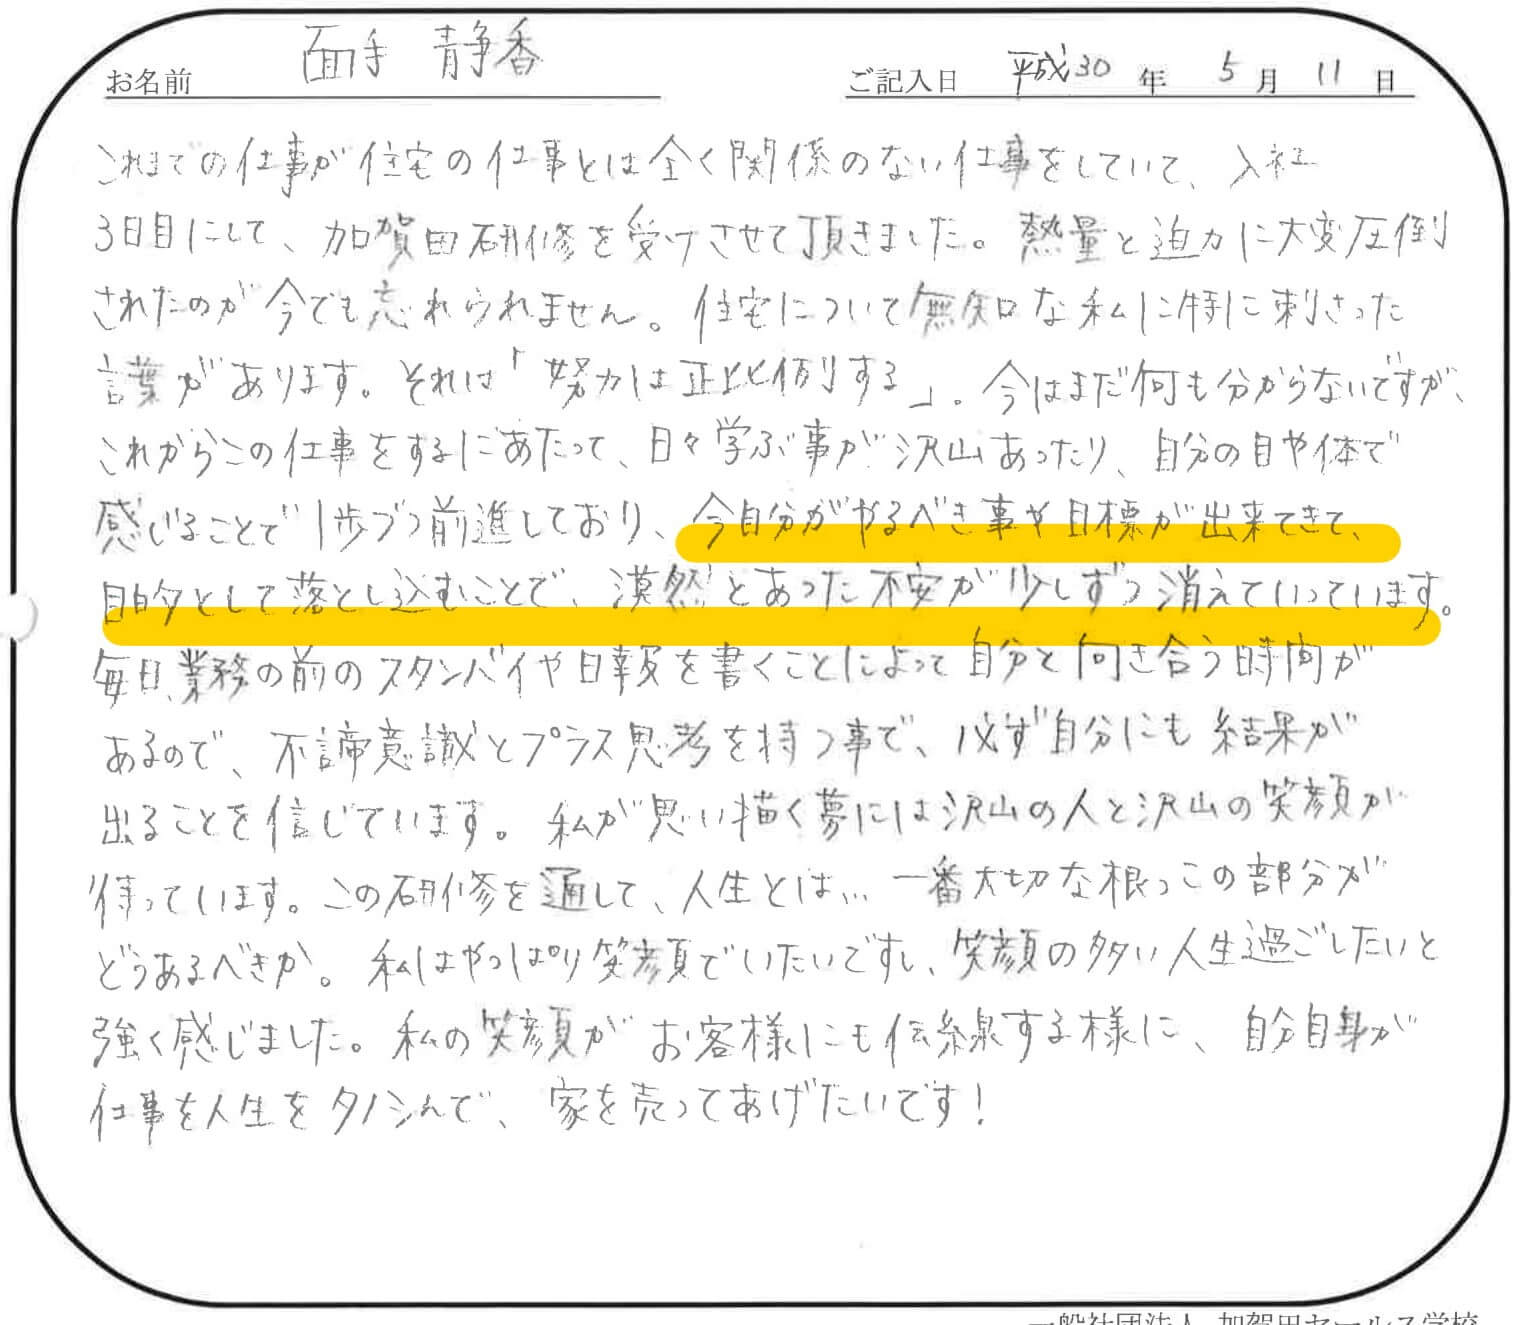 お名前 面手 静香 ご記入日 平成30年 5月 11日
これまでの仕事が住宅の仕事とは全く関係のない仕事をしていて、入社
3日目にして、加賀田研修を受けさせて頂きました。熱量と迫力に大変圧倒
されたのが今でも忘れられません。住宅について無知な私に特に刺さった
言葉があります。それは「努力は正比例する」。今はまだ何も分からないですが、
これからこの仕事をするにあたって、日々学ぶ事が沢山あったり、自分の目や体で
感じることで1歩づつ前進しており、今自分がやるべき事や目標が出来てきて、
目的として落とし込むことで、漠然とあった不安が少しずつ消えていっています。
毎日、業務の前のスタンバイや日報を書くことによって自分と向き合う時間が
あるので、不諦意識とプラス思考を持つ事で、必ず自分にも結果が
出ることを信じています。私が思い描く夢には沢山の人と沢山の笑顔が
待っています。この研修を通して、人生とは… 一番大切な根っこの部分が
どうあるべきか。私はやっぱり笑顔でいたいですし、笑顔の多い人生過ごしたいと
強く感じました。私の笑顔がお客様にも伝線する様に、自分自身が
仕事を人生をタノシんで、家を売ってあげたいです!
一般社団法人 加賀田セールス学校